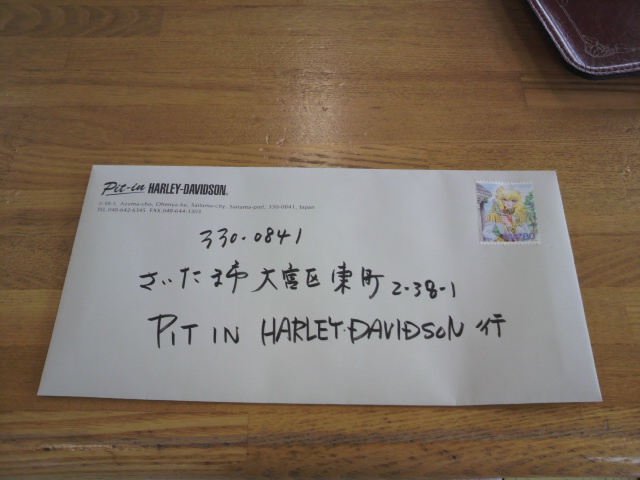 Pit-in HARLEY-DAVIDSON.
2-38-1, Azuma-cho, Ohmiya-ku, Saitama-city, Saitama-pref, 330-0841, Japan
TEL.048-642-6345 FAX.048-644-3303
80
330-0841
さいたま市 大宮区 東町 2-38-1
PIT IN HARLEY-DAVIDSON 行